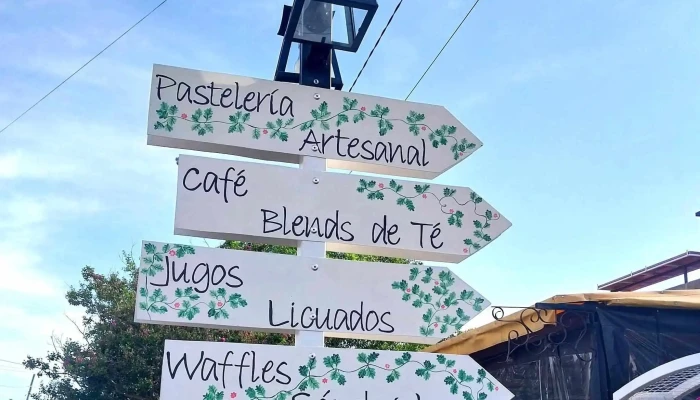 Pastelería
Artesanal
Café
Blends de Té
Jugos
Licuados
Waffles